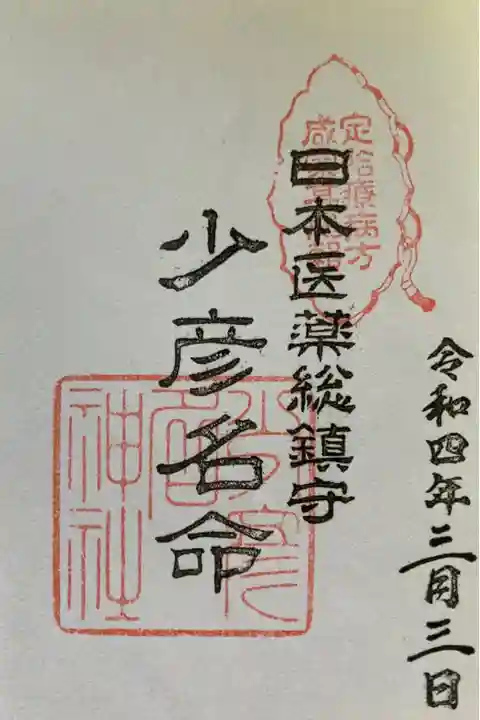 定給療病方
日本医薬総鎮守
少彦名命
少彦名神社
令和四年三月三日